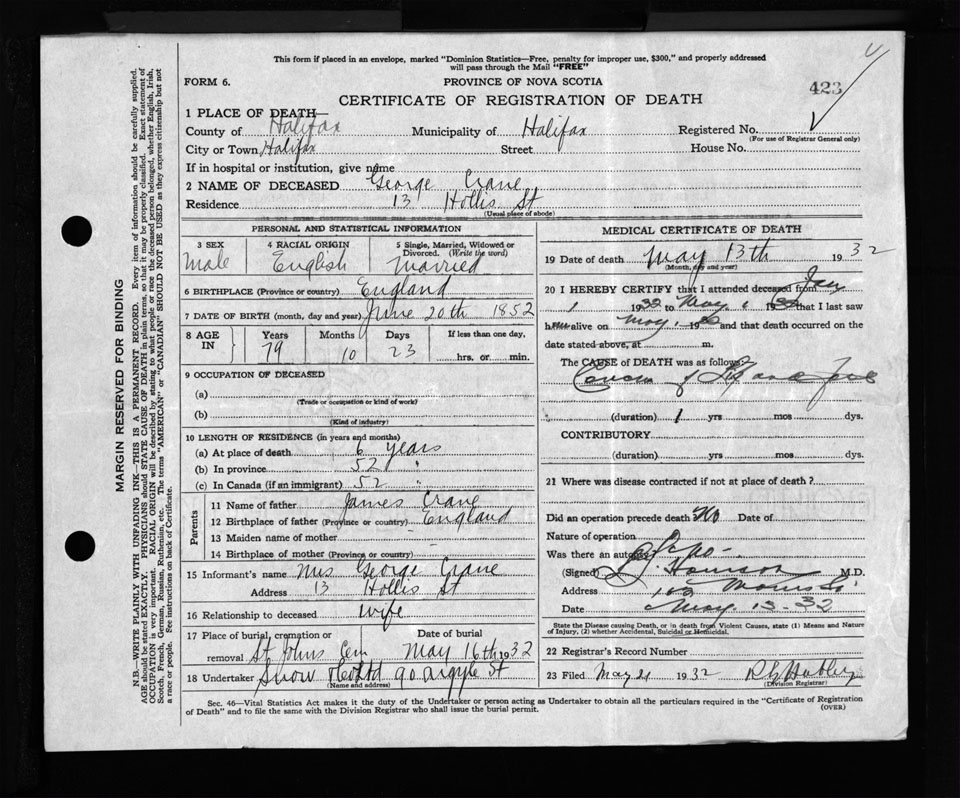 This form if placed in an envelope, marked "Dominion Statistics—Free, penalty for improper use, $300," and properly addressed
will pass through the Mail "FREE"
FORM 6.
PROVINCE OF NOVA SCOTIA
423
CERTIFICATE OF REGISTRATION OF DEATH
1 PLACE OF DEATH—
County of Halifax Municipality of Halifax Registered No.
(For use of Registrar General only)
City or Town Halifax Street House No.
If in hospital or institution, give name
2 NAME OF DECEASED George Crane
Residence 13 Hollis St
(Usual place of abode)
PERSONAL AND STATISTICAL INFORMATION
3 SEX 4 RACIAL ORIGIN 5 Single, Married, Widowed or
Divorced. (Write the word)
Male English Married
6 BIRTHPLACE (Province or country) England
7 DATE OF BIRTH (month, day and year) June 20th 1852
8 AGE IN Years Months Days If less than one day,
79 10 23 hrs. or min.
9 OCCUPATION OF DECEASED
(a)
(Trade or occupation or kind of work)
(b)
(Kind of industry)
10 LENGTH OF RESIDENCE (in years and months)
(a) At place of death 6 years
(b) In province 52 "
(c) In Canada (if an immigrant) 52 "
Parents
11 Name of father James Crane
12 Birthplace of father (Province or country) England
13 Maiden name of mother
14 Birthplace of mother (Province or country) –
15 Informant's name Mrs George Crane
Address 13 Hollis St
16 Relationship to deceased wife
17 Place of burial, cremation or Date of burial
removal St Johns Cem May 16th 1932
18 Undertaker Snow & Co Ltd 90 Argyle St
(Name and address)
MEDICAL CERTIFICATE OF DEATH
19 Date of death May 13th 1932
(Month, day and year)
20 I HEREBY CERTIFY that I attended deceased from Jan
1 1932 to May 1932 that I last saw
him alive on May 19 and that death occurred on the
date stated above, at m.
The CAUSE of DEATH was as follows:
Cancer of Lip and Jaw
(duration) 1 yrs mos dys.
CONTRIBUTORY
(duration) yrs. mos. dys.
21 Where was disease contracted if not at place of death?
Did an operation precede death No Date of
Nature of operation
Was there an autopsy No
(Signed) M.D.
Address Morris St
Date May 13-32
State the Disease causing Death, or in death from Violent Causes, state (1) Means and Nature
of Injury, (2) whether Accidental, Suicidal or Homicidal.
22 Registrar's Record Number
23 Filed May 21 1932
(Division Registrar)
Sec. 46—Vital Statistics Act makes it the duty of the Undertaker or person acting as Undertaker to obtain all the particulars required in the "Certificate of Registration
of Death" and to file the same with the Division Registrar who shall issue the burial permit. (OVER)
MARGIN RESERVED FOR BINDING
N.B.—WRITE PLAINLY WITH UNFADING INK—THIS IS A PERMANENT RECORD. Every item of information should be carefully supplied.
AGE should be stated EXACTLY. PHYSICIANS should STATE CAUSE OF DEATH in plain terms, so that it may be properly classified. Exact statement of
OCCUPATION is very important. RACIAL ORIGIN will be described by stating to what people or race the deceased person belonged, whether English, Irish,
Scotch, French, German, Russian, Ruthenian, etc. The terms "AMERICAN" or "CANADIAN" SHOULD NOT BE USED as they express citizenship but not
a race or people. See instructions on back of Certificate.